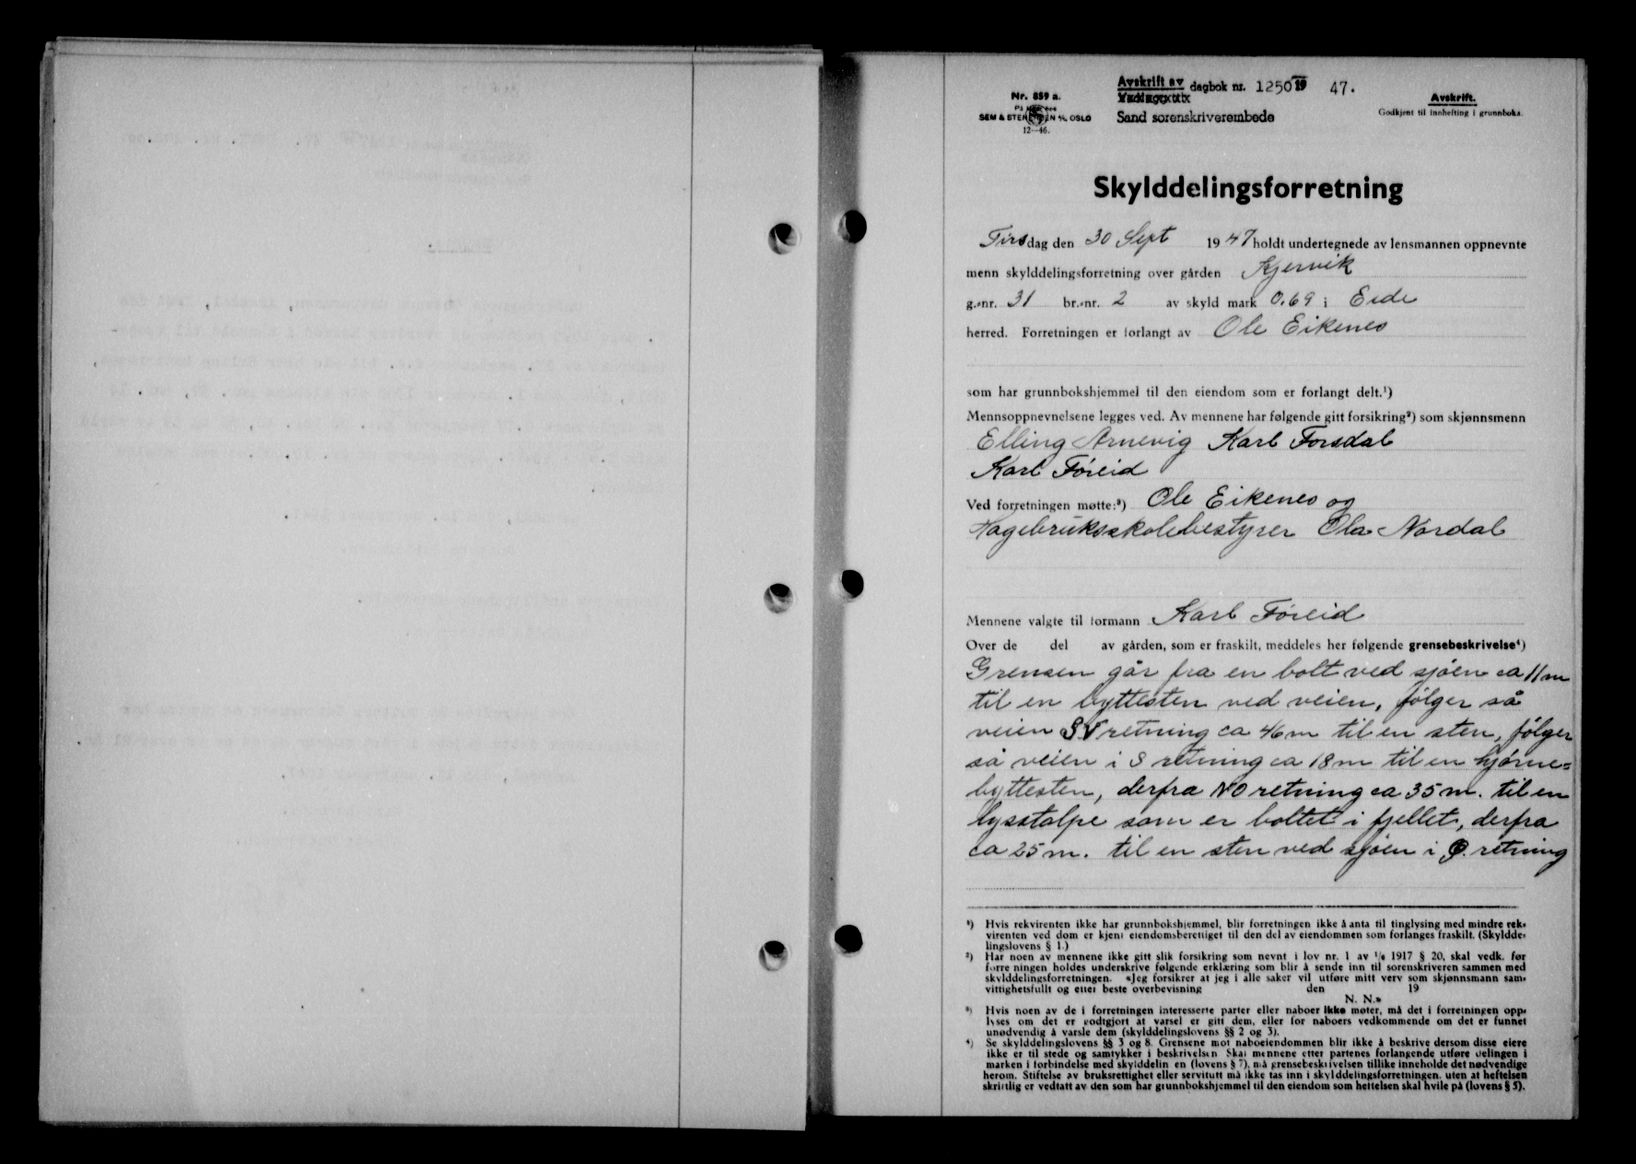 Nr. 859 a.
SEM & STENERSEN A/S, OSLO
12-46.
Avskrift av dagbok nr. 1250 19 47.
Sand sorenskriverembede
Avskrift.
Godkjent til innhefting i grunnboka.
Skylddelingsforretning
Tirsdag den 30 Sept 1947 holdt undertegnede av lensmannen oppnevnte
menn skylddelingsforretning over gården Kjervik
g.-nr. 31 br.-nr. 2 av skyld mark 0.69 i Eide
herred. Forretningen er forlangt av Ole Eikenes
som har grunnbokshjemmel til den eiendom som er forlangt delt.¹)
Mennsoppnevnelsene legges ved. Av mennene har følgende gitt forsikring²) som skjønnsmenn
Elling Arnevig Karl Forsdal
Karl Føreid
Ved forretningen møtte:³) Ole Eikenes og
Hagebruksskolebestyrer Ola Nordal
Mennene valgte til formann Karl Føreid
Over de del av gården, som er fraskilt, meddeles her følgende grensebeskrivelse⁴)
Grensen går fra en bolt ved sjøen ca 11 m
til en byttesten ved veien, følger så
veien SV retning ca 46 m til en sten, følger
så veien i S retning ca 18 m til en hjørne=
byttesten, derfra NO retning ca 35 m. til en
lysstolpe som er boltet i fjellet, derfra
ca 25 m. til en sten ved sjøen i Ø. retning
¹) Hvis rekvirenten ikke har grunnbokshjemmel, blir forretningen ikke å anta til tinglysing med mindre rek-
virenten ved dom er kjent eiendomsberettiget til den del av eiendommen som forlanges fraskilt. (Skyldde-
lingslovens § 1.)
²) Har noen av mennene ikke gitt slik forsikring som nevnt i lov nr. 1 av 1/6 1917 § 20, skal vedk. før
forretningen holdes underskrive følgende erklæring som blir å sende inn til sorenskriveren sammen med
skylddelingsforretningen. «Jeg forsikrer at jeg i alle saker vil utføre mitt verv som skjønnsmann sam-
vittighetsfullt og etter beste overbevisning den 19
N. N.»
³) Hvis noen av de i forretningen interesserte parter eller naboer ikke møter, må det i forretningen opp-
lyses om det er godtgjort at varsel er gitt dem, eller for naboers vedkommende om det er funnet
unødvendig å varsle dem (skylddelingslovens §§ 2 og 3).
⁴) Se skylddelingslovens §§ 3 og 8. Grensene mot naboeiendommen blir ikke å beskrive dersom disse eiere
ikke er til stede og samtykker i beskrivelsen. Skal mennene etter partenes forlangende utføre delingen i
marken i forbindelse med skylddelingen (lovens § 7), må grensebeskrivelsen tillike inneholde det nødvendige
herom. Stiftelse av bruksrettighet eller servitutt må ikke tas inn i skylddelingsforretningen, uten at heftelsen
skriftlig er vedtatt av den som har grunnbokshjemmel til den eiendom som heftelsen skal hvile på (lovens § 5).